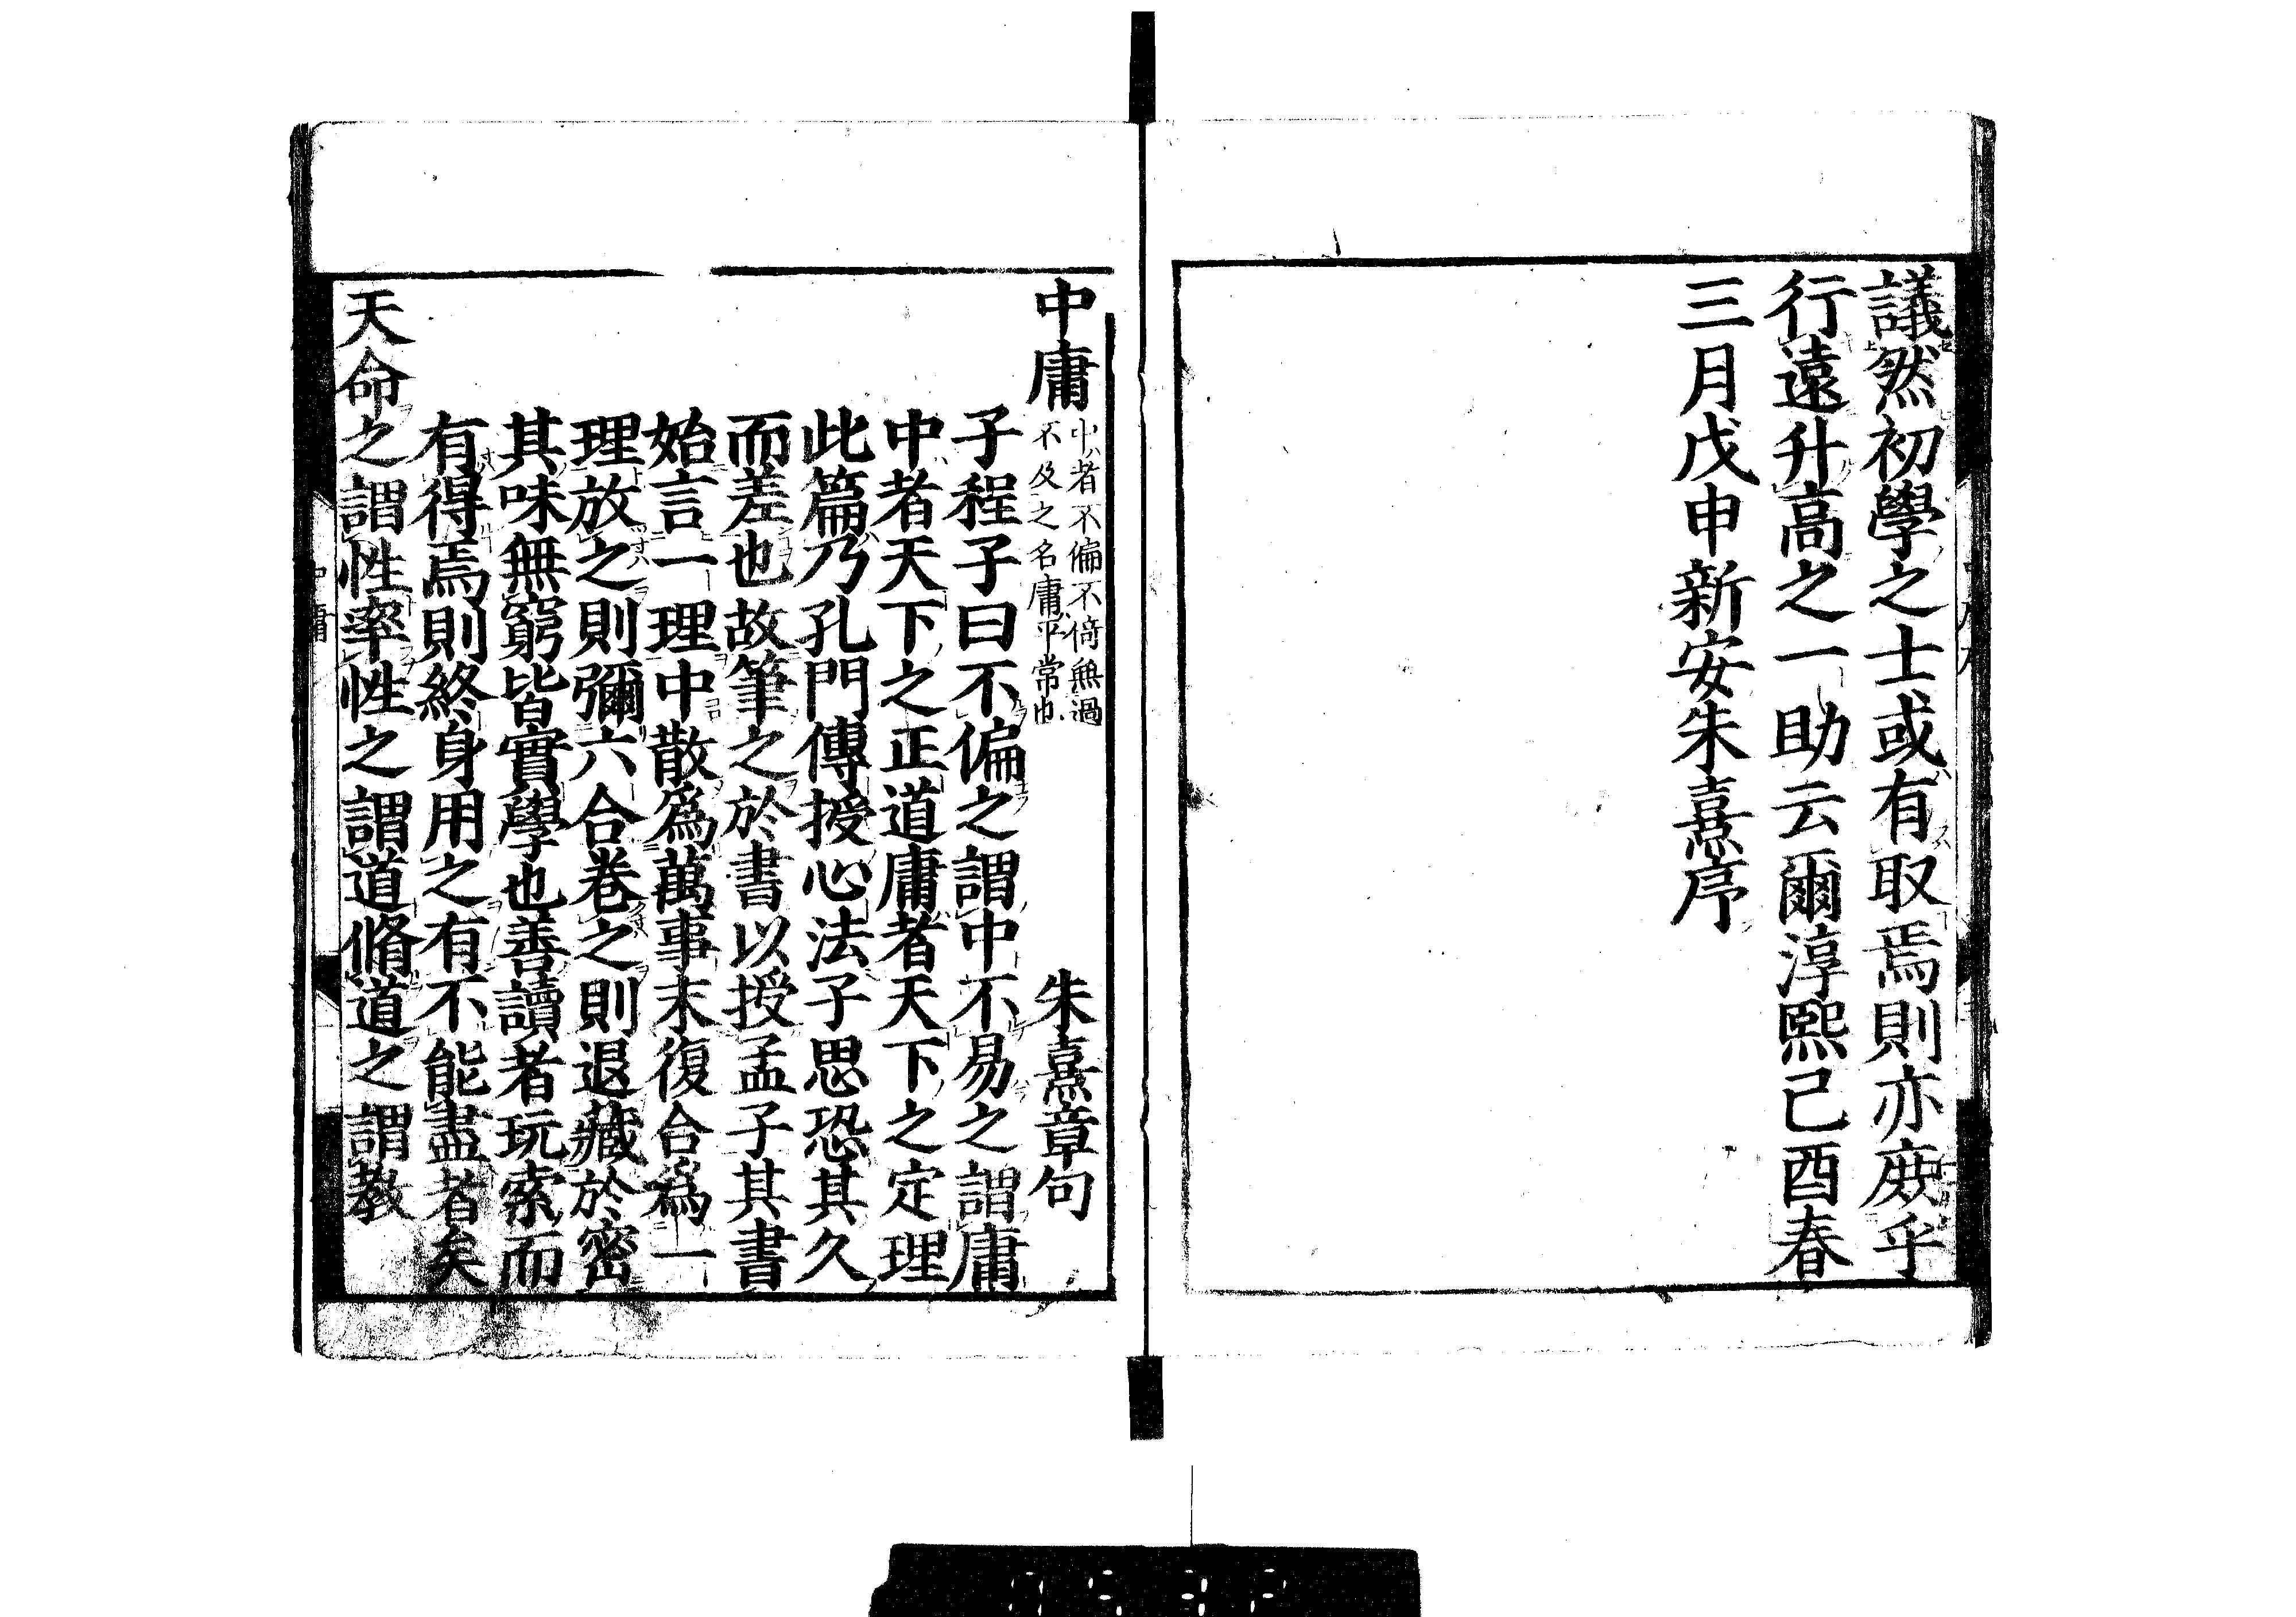 議然初學之士或有取焉則亦庻乎
行遠升高之一助云爾淳熙己酉春
三月戊申新安朱熹序
中庸
中者不偏不倚無過
不及之名庸平常也
朱熹章句
子程子曰不偏之謂中不易之謂庸
中者天下之正道庸者天下之定理
此篇乃孔門傳授心法子思恐其久
而差也故筆之於書以授孟子其書
始言一理中散爲萬事末復合爲一
理放之則彌六合卷之則退藏於密
其味無窮皆實學也善讀者玩索而
有得焉則終身用之有不能盡者矣
天命之謂性率性之謂道脩道之謂教